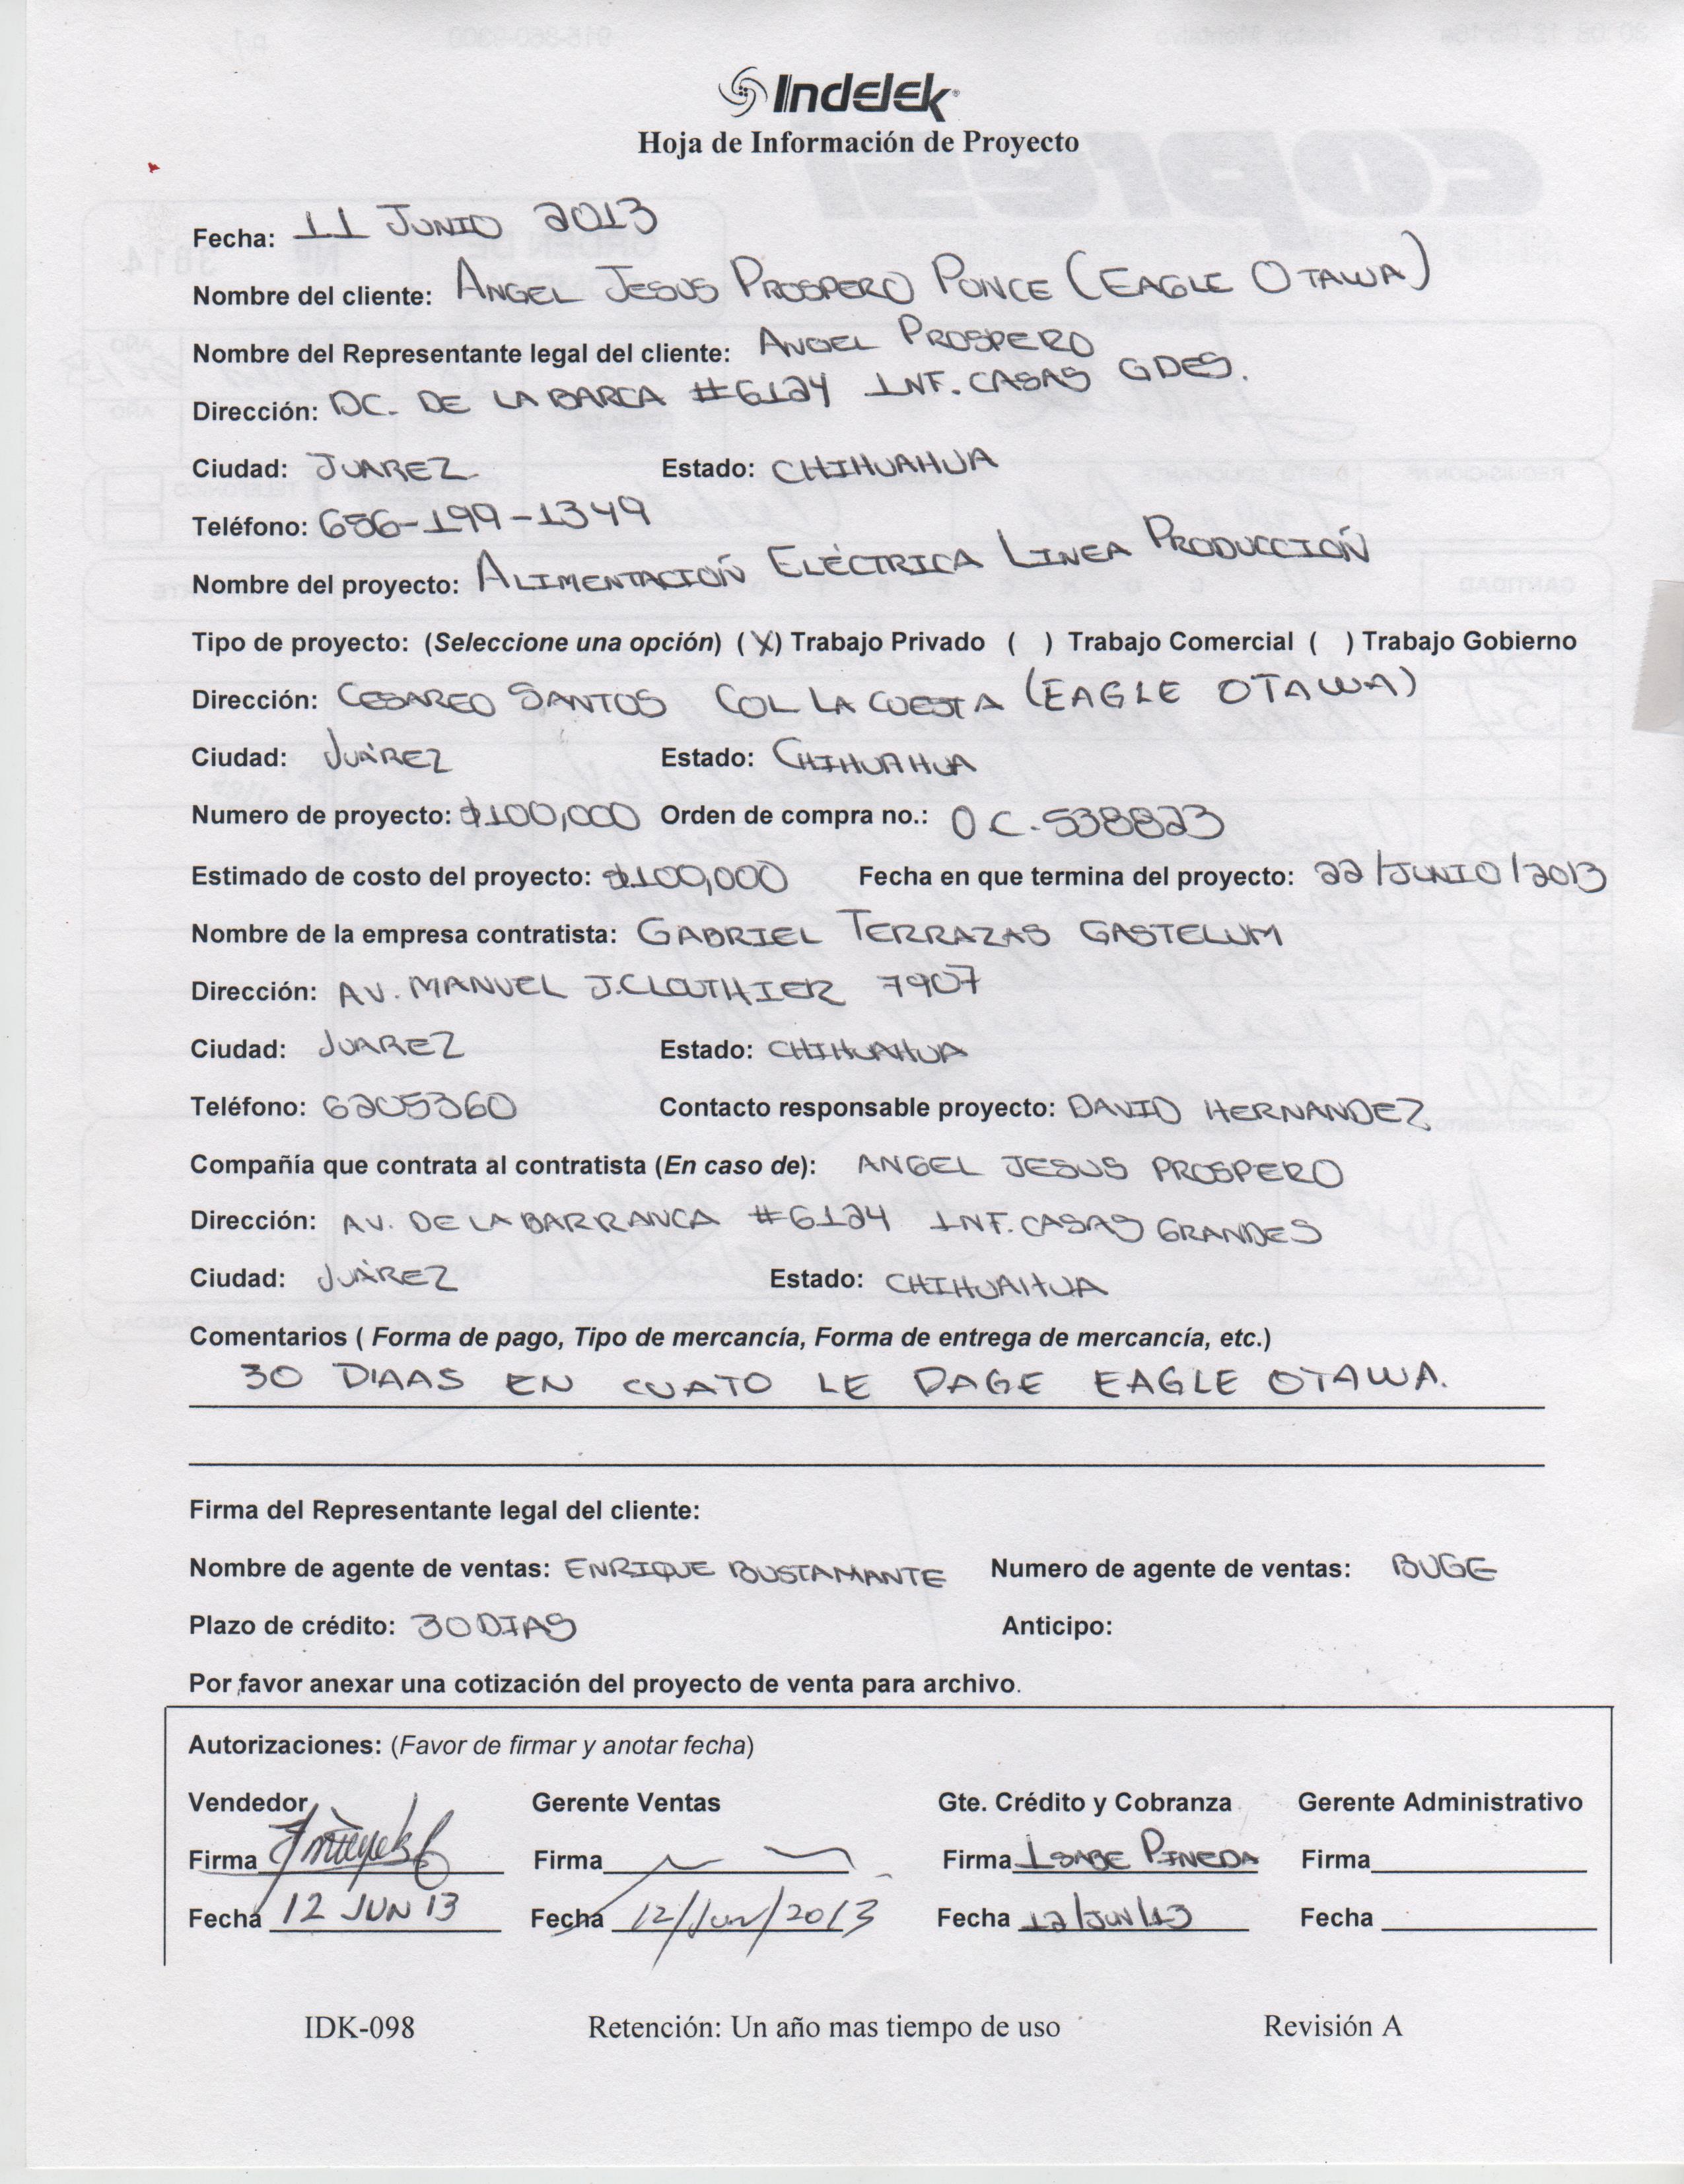 Indelek
Hoja de Información de Proyecto
Fecha: 11 JUNIO 2013
Nombre del cliente: ANGEL JESUS PROSPERO PONCE (EAGLE OTAWA)
Nombre del Representante legal del cliente: ANGEL PROSPERO
Dirección: DC. DE LA BARCA #6124 INF. CASAS GDES.
Ciudad: JUAREZ Estado: CHIHUAHUA
Teléfono: 656-199-1349
Nombre del proyecto: ALIMENTACIÓN ELÉCTRICA LINEA PRODUCCIÓN
Tipo de proyecto: (Seleccione una opción) (X) Trabajo Privado ( ) Trabajo Comercial ( ) Trabajo Gobierno
Dirección: CESAREO SANTOS COL LA CUESTA (EAGLE OTAWA)
Ciudad: JUÁREZ Estado: CHIHUAHUA
Numero de proyecto: $100,000 Orden de compra no.: O.C.-538823
Estimado de costo del proyecto: $100,000 Fecha en que termina del proyecto: 22/JUNIO/2013
Nombre de la empresa contratista: GABRIEL TERRAZAS GASTELUM
Dirección: AV. MANUEL J.CLOUTHIER 7907
Ciudad: JUAREZ Estado: CHIHUAHUA
Teléfono: 6205360 Contacto responsable proyecto: DAVID HERNANDEZ
Compañía que contrata al contratista (En caso de): ANGEL JESUS PROSPERO
Dirección: AV. DE LA BARRANCA #6124 INF. CASAS GRANDES
Ciudad: JUÁREZ Estado: CHIHUAHUA
Comentarios ( Forma de pago, Tipo de mercancía, Forma de entrega de mercancía, etc.)
30 DIAAS EN CUATO LE PAGE EAGLE OTAWA.
Firma del Representante legal del cliente:
Nombre de agente de ventas: ENRIQUE BUSTAMANTE Numero de agente de ventas: BUGE
Plazo de crédito: 30 DIAS Anticipo:
Por favor anexar una cotización del proyecto de venta para archivo.
Autorizaciones: (Favor de firmar y anotar fecha)
Vendedor Gerente Ventas Gte. Crédito y Cobranza Gerente Administrativo
Firma Firma Firma ISABE PINEDA Firma
Fecha 12 JUN 13 Fecha 12/Jun/2013 Fecha 12/JUN/13 Fecha
IDK-098 Retención: Un año mas tiempo de uso Revisión A